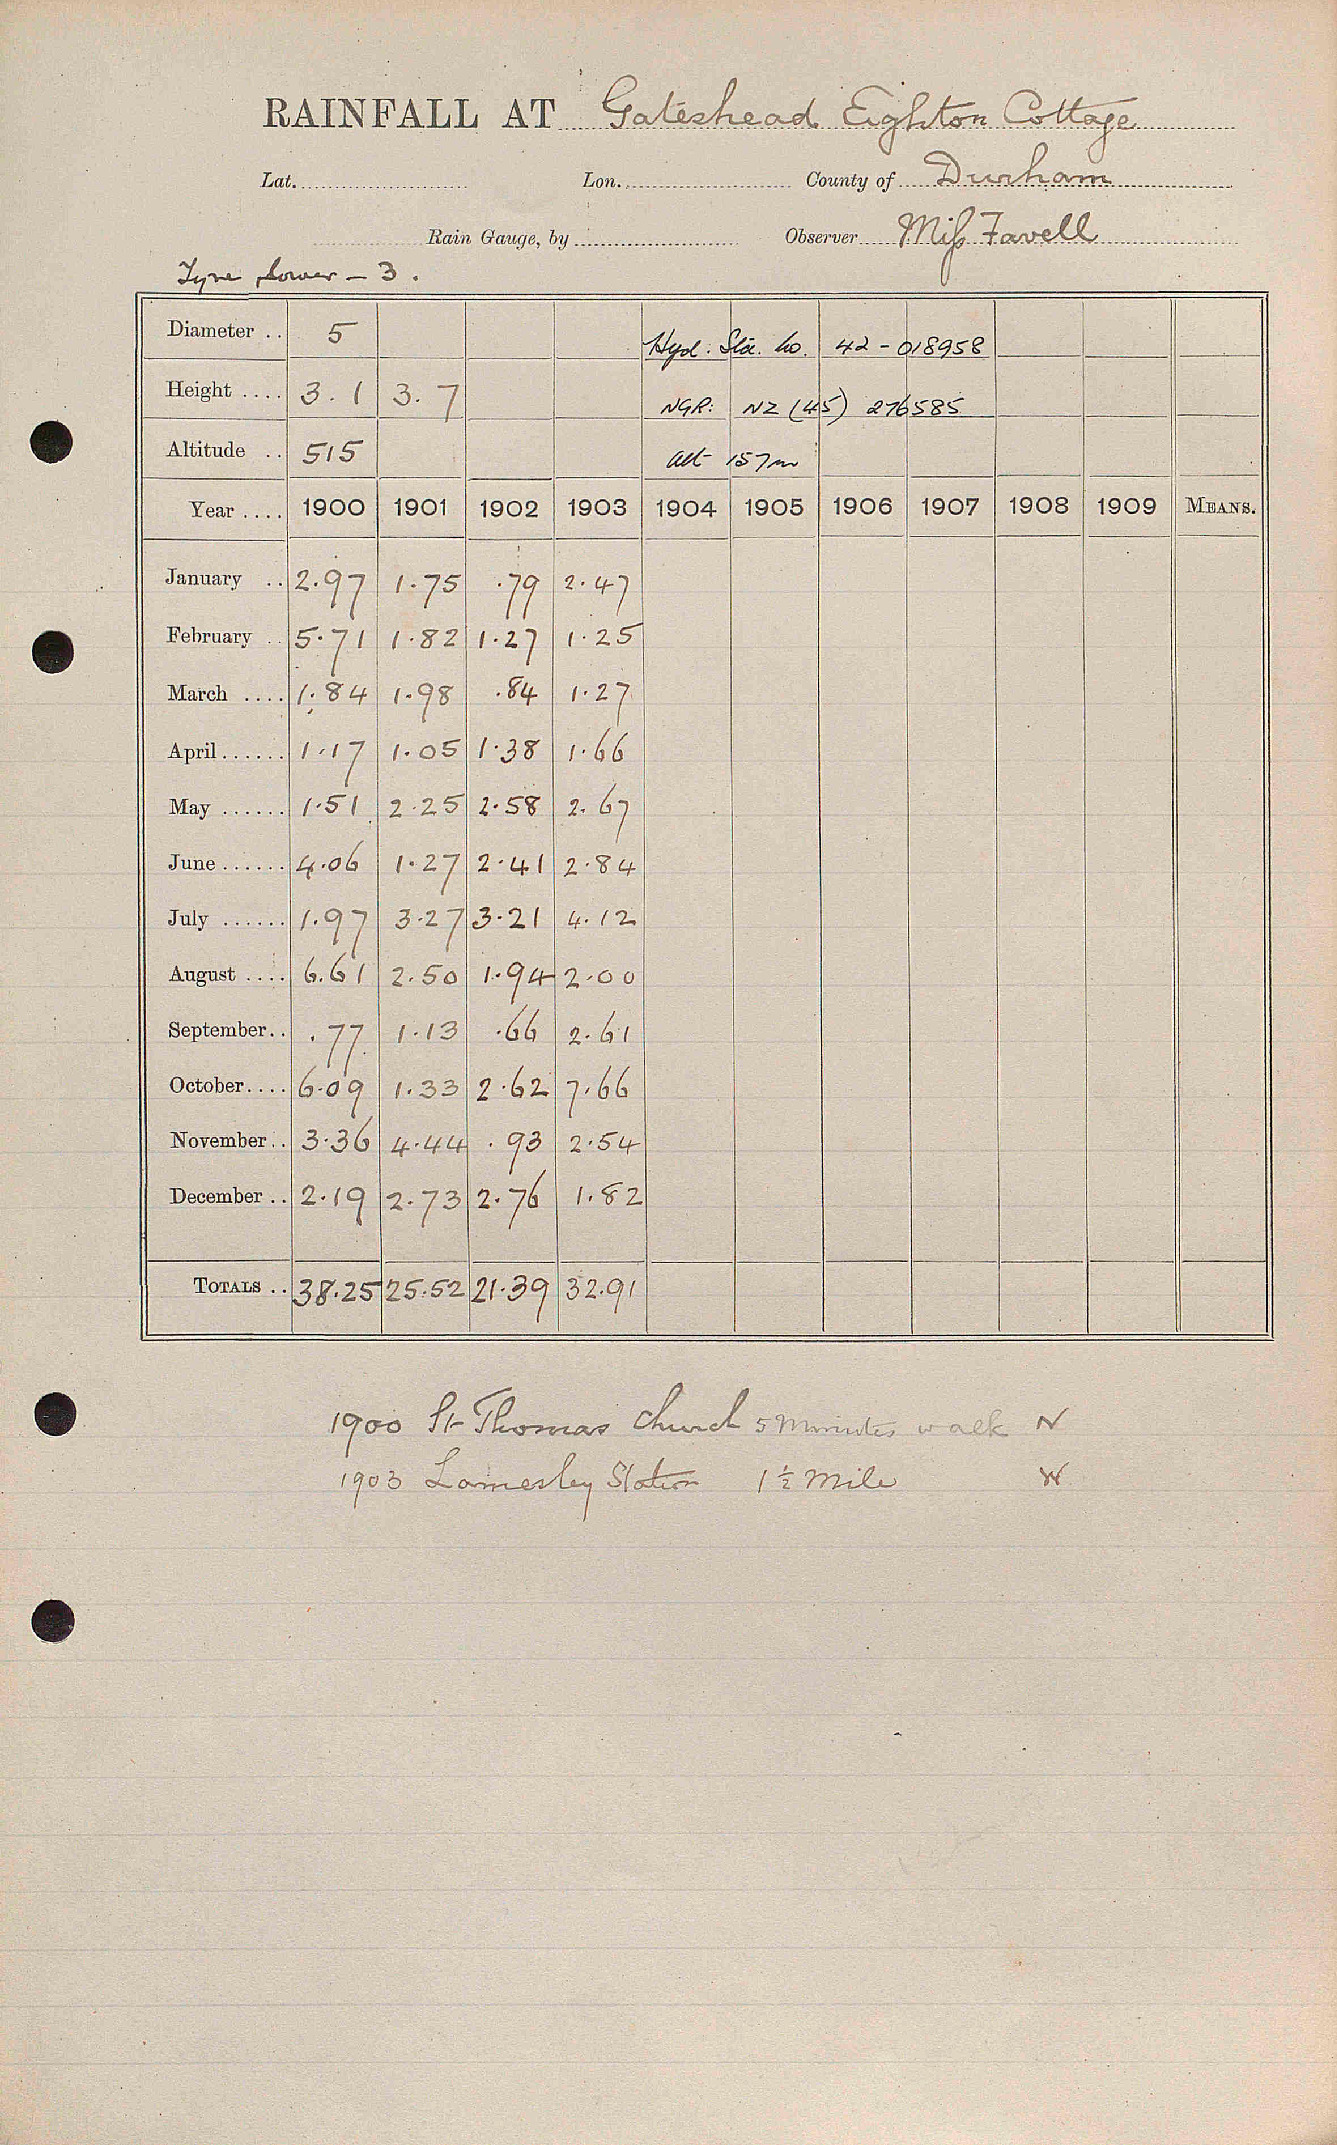 RAINFALL AT Gateshead Eighton Cottage
Lat. Lon. County of Durham
Rain Gauge, by Observer Miss Favell
Tyne Lower - 3.
Diameter .. 5 Hyd. Sta. No. 42 - 018958
Height .... 3.1 3.7 NGR: NZ (45) 276585
Altitude .. 515 Alt 157m
Year .... 1900 1901 1902 1903 1904 1905 1906 1907 1908 1909 MEANS.
January .. 2.97 1.75 .79 2.47
February .. 5.71 1.82 1.27 1.25
March .... 1.84 1.98 .84 1.27
April ...... 1.17 1.05 1.38 1.66
May ...... 1.51 2.25 2.58 2.67
June ...... 4.06 1.27 2.41 2.84
July ...... 1.97 3.27 3.21 4.12
August .... 6.61 2.50 1.94 2.00
September .. .77 1.13 .66 2.61
October .... 6.09 1.33 2.62 7.66
November .. 3.36 4.44 .93 2.54
December .. 2.19 2.73 2.76 1.82
TOTALS .. 38.25 25.52 21.39 32.91
1900 St Thomas Church 5 Minutes walk N
1903 Lamesley Station 1½ Mile W